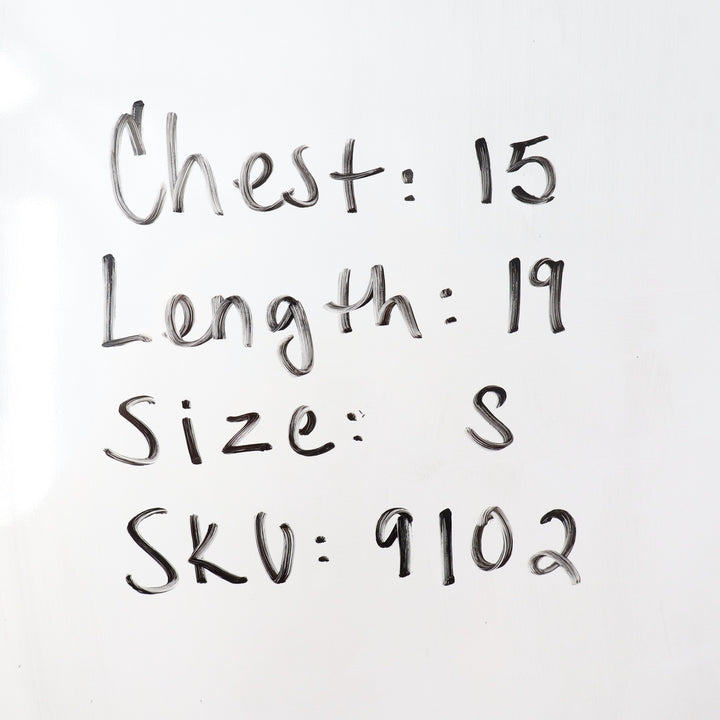 Chest: 15
Length: 19
Size: S
SKU: 9102